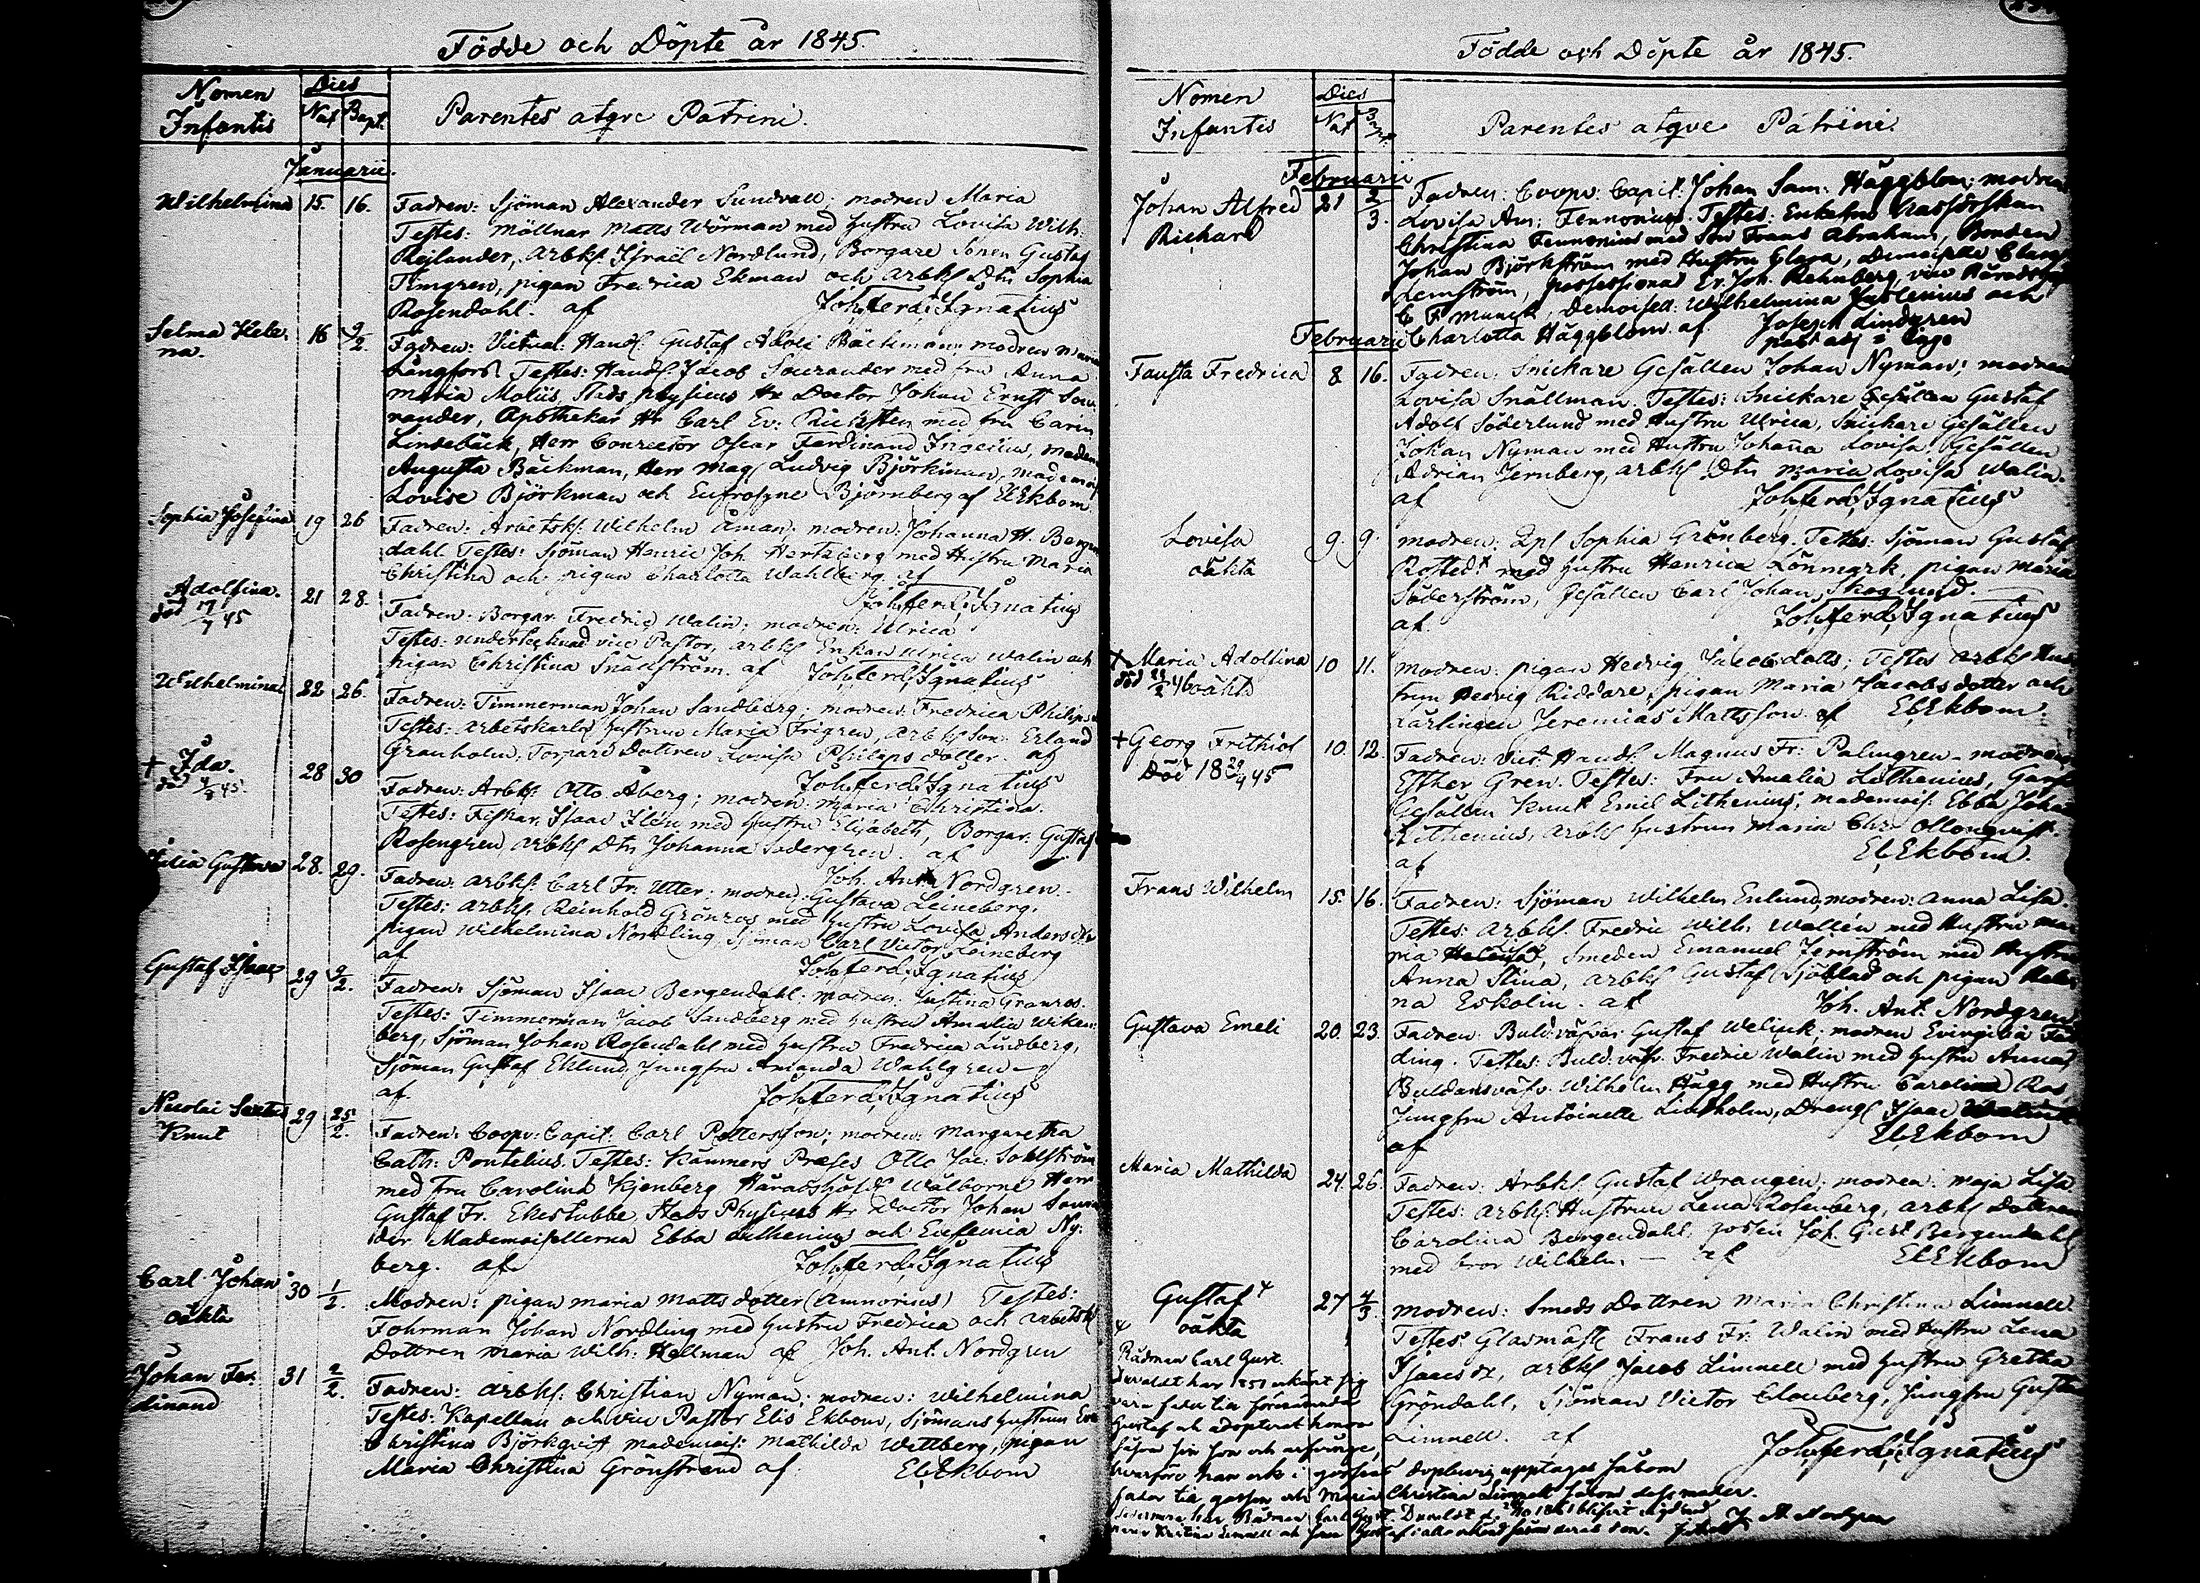 Födde och Döpte år 1845.
Nomen Infantis
Dies
Nat Bapt.
Parentes atqve Patrini.
Januarii.
Wilhelmina 15. 16. Fadren: Sjöman Alexander Sundvall; modren Maria
Testes: Möllnar Matts Wörman med hustru Lovisa Wilh:
Rejlander, arbks. Israël Nordlund, Borgare Sonen Gustaf
Timgren, pigan Fredrica Ekman och arbks Dtr Sophia
Rosendahl. af Joh. Ferd. Ignatius
Selma Hele- 16 9/2 Fadren: Victual: Handl. Gustaf Adolf Bäckman; modren Maria
na. Långfors Testes: Handl. Jacob Sourander med fru Anna
Maria Moliis, Stads physicus Hr Doctor Johan Ernst Sou
rander, Apothekar Hr Carl Ev: med fru Carin
Lindebäck, Herr Conrector Oscar Ferdinand Ingelius, madem
Augusta Bäckman, Herr Mag. Ludvig Björkman, mademois
Lovise Björkman och Eufrosyne Björnberg af El. Ekbom
Sophia Josefina 19 26 Fadren: Arbetsk. Wilhelm Åman; modren: Johanna H. Bergen
dahl Testes: Sjöman Henric Joh. Hertzberg med Hustru Maria
Christina och pigan Charlotta Wahlberg. af
Joh. Ferd. Ignatius
Adolfina. 21 28. Fadren: Borgar. Fredric Walin; modren: Ulrica
död 17/7 45 Testes: undertecknad vice Pastor, arbks Enkan Ulrica Walin och
pigan Christina Snäckström. af Joh. Ferd. Ignatius
Wilhelmina 22 26. Fadren: Timmerman Johan Sandberg; modren: Fredrica Philips
Testes: arbetskarls hustrun Maria Frigren, arbks son: Erland
Granholm, Torpare Dottren Lovisa Philips dotter. af
Joh. Ferd. Ignatius
+ Ida. 28 30 Fadren: Arbks. Otto Åberg; modren: Maria Christina.
död 45. Testes: Fiskar. Isaac Ilén med hustru Elisabeth, Borgar. Gustaf
Rosengren arbks Dtr Johanna Södergren. af
Joh. Ant. Nordgren.
Julia Gustava 28. 29. Fadren: arbks. Carl Fr. Utter; modren: Gustava Leineberg.
Testes: arbks. Reinhold Grönros med hustru Lovisa Anders dtr
pigan Wilhelmina Nordling, Sjöman Carl Victor Leineberg
af Joh. Ferd. Ignatius
Gustaf Isaac 29 9/2. Fadren: Sjöman Isaac Bergendahl; modren: Justina Granros.
Testes: Timmerman Jacob Sandberg med hustru Amalia Wiken
berg, Sjöman Johan Rosendahl med hustru Fredrica Lundberg,
Sjöman Gustaf Eklund Jungfru Amanda Wahlgren
af Joh. Ferd. Ignatius
Nicolai Sextus 29 25/2. Fadren: Coopv: Capit: Carl Pettersson; modren: Margaretha
Knut Cath: Pontelius. Testes: Kämners Præses Otto Jac: Sohlström
med fru Carolina Kjenberg Häradshöfd. Wälborne Herr
Gustaf Fr. Ekestubbe, Stads Physicus Hr Doctor Johan
der Mademoisellerna Ebba Lithenius och Eufemia Ny-
berg. af Joh. Ferd. Ignatius
Carl Johan 30 1/2. Modren: pigan Maria Matts dotter (Amnorius) Testes:
oäkta Fohrman Johan Nordling med hustru Fredrica och arbetsk.
Dottren Maria Wilh: Hellman af Joh. Ant. Nordgren
Johan Fer- 31 2/2. Fadren: Arbks. Christian Nyman; modren: Wilhelmina
dinand Testes: Kapellan och vice Pastor Elis Ekbom, Sjömans hustrun Eva
Christina Björkqvist mademois: Mathilda Wettberg, pigan
Maria Christina Grönstrand af El. Ekbom
Födde och Döpte år 1845.
Nomen Infantis
Dies
Nat Bapt.
Parentes atqve Patrini.
Februarii
Johan Alfred 21 2/3. Fadren: Coopv: Capit: Johan Sam: Häggblom; modren
Richard Lovisa An: Fennonius. Testes: Enkefru
Christina Fennonius med Son Frans Abraham, Bonden
Johan Björkström med Hustru Clara, Demoiselle Clara
Lemström, possessionat Er. Joh. Rehnberg, vice Häradshöf
C F Munck, Demoisell: Wilhelmina Juslenius och
Charlotta Häggblom. af Joseph Lindgren
past adj i
Februarii
Fausta Fredrica 8 16. Fadren: Snickare Gesällen Johan Nyman; modren
Lovisa Snällman. Testes: Snickare Gesällen Gustaf
Adolf Söderlund med Hustru Ulrica, Snickare Gesällen
Johan Nyman med Hustru Johanna Lovisa, Gesällen
Adrian Jernberg, arbks Dtr Maria Lovisa Walin.
af Joh. Ferd. Ignatius
Lovisa 9. 9. modren: Sophia Grönberg. Testes: Sjöman Gustaf
oäkta Rostedt med hustru Henrica Lönmark, pigan Maria
Söderström, Gesällen Carl Johan Skoglund.
af. Joh. Ferd. Ignatius
+ Maria Adolfina 10 11. modren: pigan Hedvig Jacobs dotts; Testes arbks Hus
död 46 oäkta trun Hedvig Riddare, pigan Maria Jacobs dotter och
Ynglingen Jeremias Mattsson. af El. Ekbom
+ Georg Frithiof 10. 12. Fadren: Vict: Handl. Magnus Fr: Palmgren - modren
Död 45 Esther Gren. Testes: Fru Amalia Lithenius, Garf
Gesällen Knut Emil Lithenius, mademois: Ebba Johan
Lithenius, arbks hustrun Maria Chr: Ollonqvist
af El. Ekbom.
Frans Wilhelm 15. 16. Fadren: Sjöman Wilhelm Enlund, modren: Anna Lisa.
Testes: arbks. Fredric Wilh. Wallén med Hustru Ma
ria Helena, Smeden Emanuel Jernström med Hustru
Anna Stina, arbks Gustaf Sjöblad och pigan Hele
na Eskolin. af Joh. Ant. Nordgren
Gustava Emeli 20. 23. Fadren: Buld.väfvar Gustaf Welijck; modren
ding. Testes: Buld. väfv. Fredric Walin med hustru Anna
Buldansväfv. Wilhelm Hägg med Hustru Carolina Ros
Jungfru Antoinette Lindholm, Drengs Isaac
af El. Ekbom
Maria Mathilda 24. 26. Fadren: Arbks. Gustaf Wrangén; modren: Maja Lisa.
Testes: arbks. Hustrun Lena Rosenberg, arbks Dottren
Carolina Bergendahl, gossen Joh. Gust Bergendahl
med bror Wilhelm. — af El. Ekbom
Gustaf 27 4/3. modren: Smeds Dottren Maria Christina Limnell
oäkta Testes: Glasmäst. Frans Fr. Walin med Hustru Lena
Isaacs dr, arbks Jacob Limnell med hustru Gretha
Gröndahl, Sjöman Victor Clouberg, Jungfru Gusta
Limnell. af Joh. Ferd. Ignatius
Rådman Carl Gust.
har 1851 erkänt sig
vara fader till förenämnda
Gustaf och adopterat honom
såsom sin son och arfvinge,
hvarföre han ock i gossens dopbevis upptages såsom
fader till gossen och Maria Christina Limnell såsom dess moder.
J. A. Nordgren